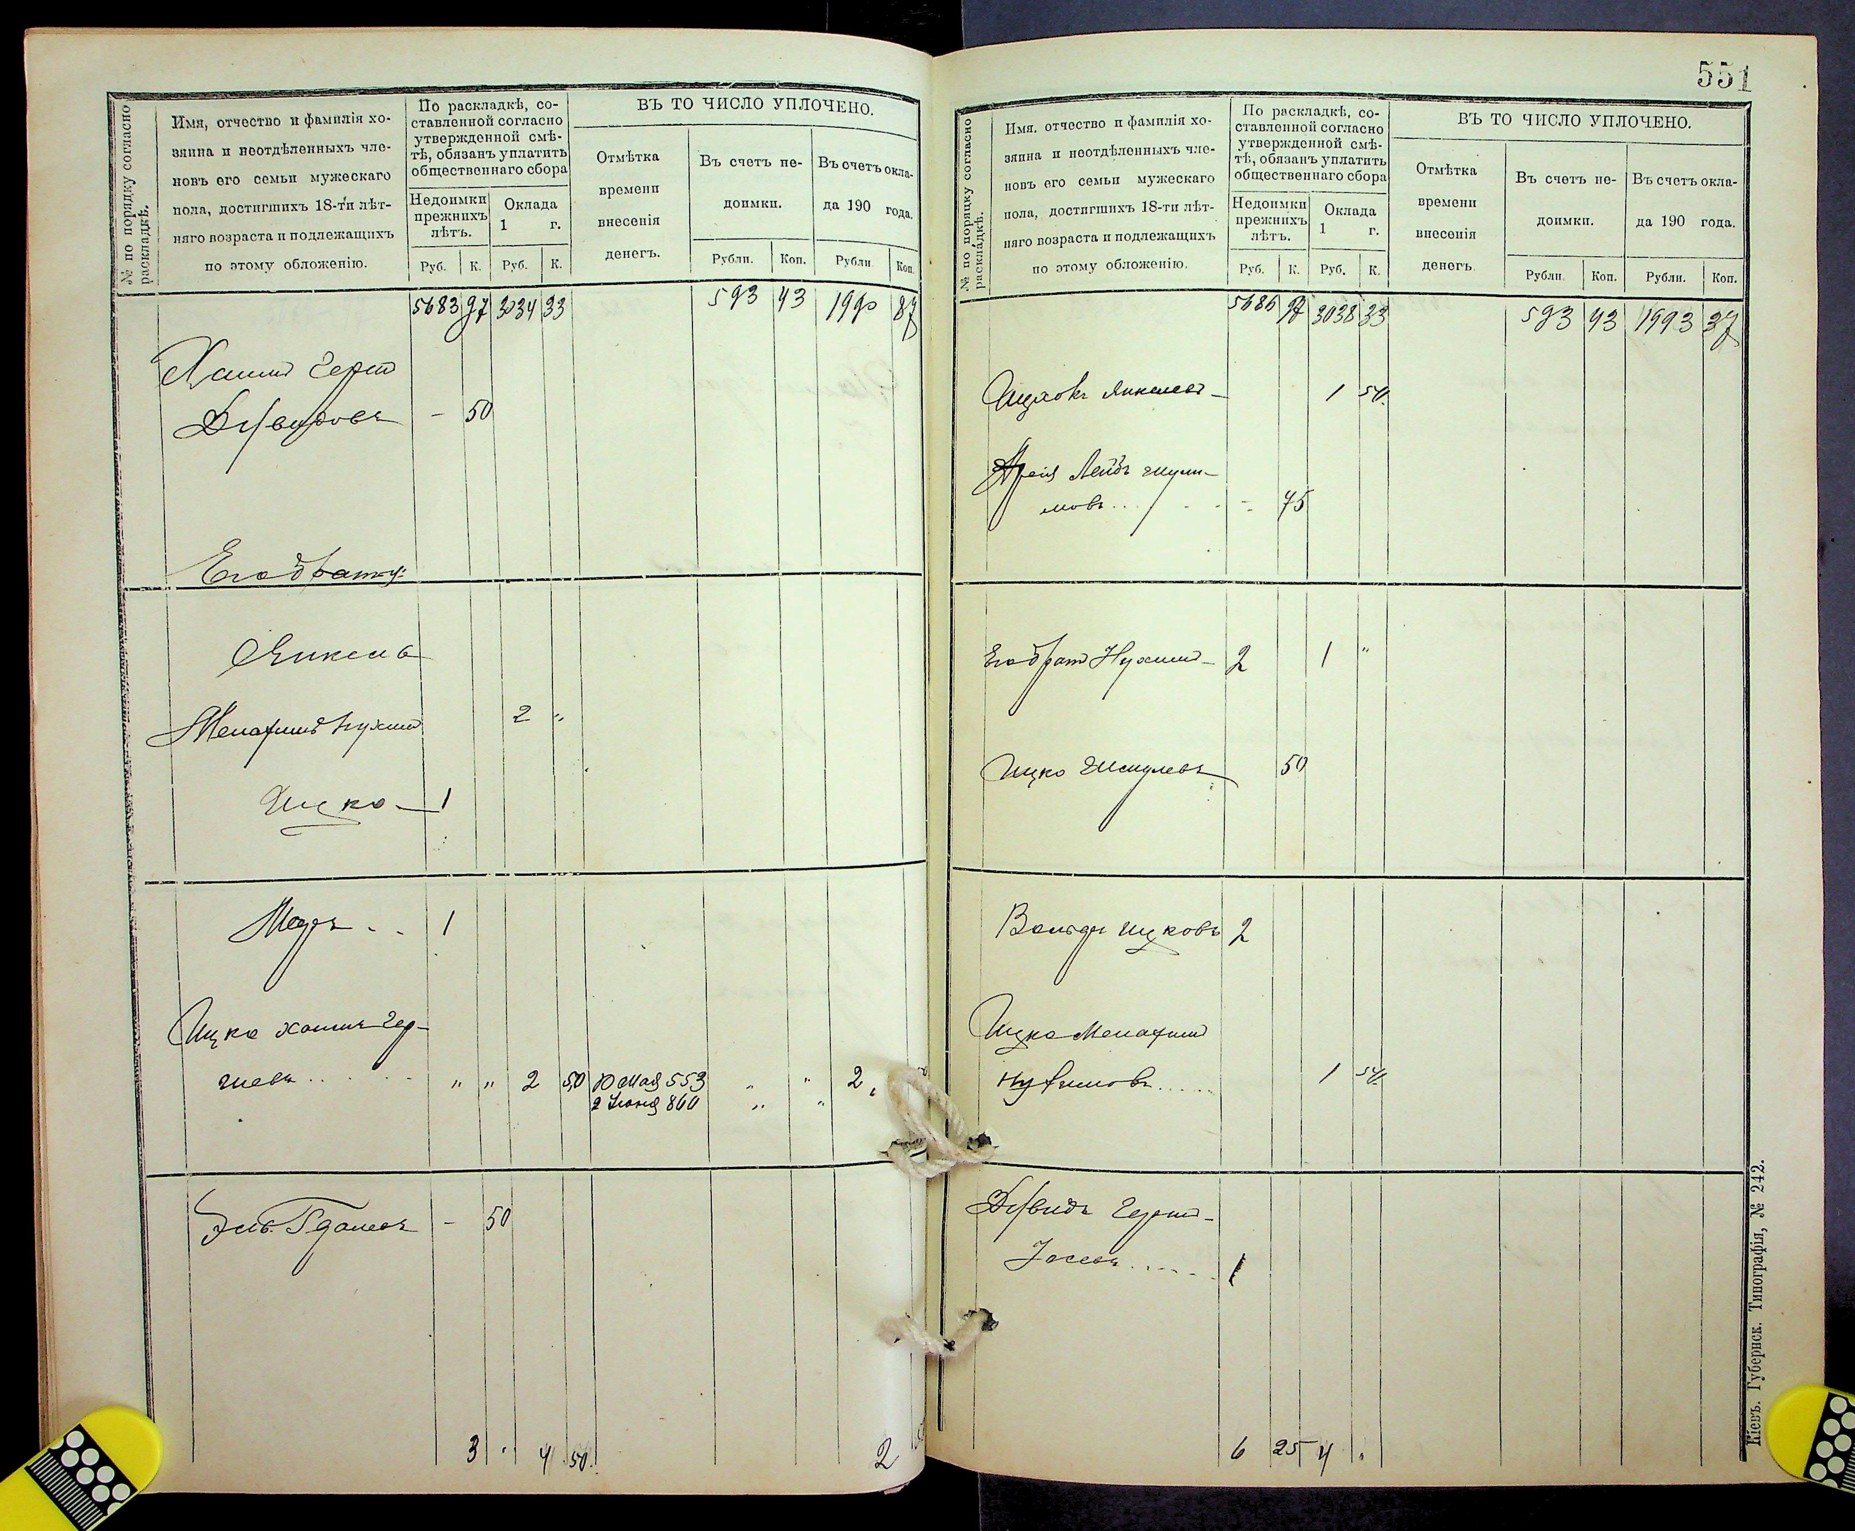 № по порядку согласно раскладкѣ.
Имя, отчество и фамилія хо-
зяина и неотдѣленныхъ чле-
новъ его семьи мужескаго
пола, достигшихъ 18-ти лѣт-
няго возраста и подлежащихъ
по этому обложенію.
По раскладкѣ, со-
ставленной согласно
утвержденной смѣ-
тѣ, обязанъ уплатить
общественнаго сбора
Недоимки
прежнихъ
лѣтъ.
Оклада
1 г.
Руб. К. Руб. К.
ВЪ ТО ЧИСЛО УПЛОЧЕНО.
Отмѣтка
времени
внесенія
денегъ.
Въ счетъ не-
доимки.
Въ счетъ окла-
да 190 года.
Рубли. Коп. Рубли Коп.
5683 97 3034 33 593 43 1990 87
Хаимъ Герш
Давидовъ – 50
Его братья:
Янкель
Менахимъ Нухимъ 2 "
Ицко – 1
1
Ицко Хаимъ Гер-
шевъ " " 2 50 553 " " 2
2 Іюня " "
– 50
3 4 50 2
551
№ по порядку согласно раскладкѣ.
Имя. отчество и фамилія хо-
зяина и неотдѣленныхъ чле-
новъ его семьи мужескаго
пола, достигшихъ 18-ти лѣт-
няго возраста и подлежащихъ
по этому обложенію.
По раскладкѣ, со-
ставленной согласно
утвержденной смѣ-
тѣ, обязанъ уплатить
общественнаго сбора
Недоимки
прежнихъ
лѣтъ.
Оклада
1 г.
Руб. К. Руб. К.
ВЪ ТО ЧИСЛО УПЛОЧЕНО.
Отмѣтка
времени
внесенія
денегъ.
Въ счетъ не-
доимки.
Въ счетъ окла-
да 190 года.
Рубли. Коп. Рубли. Коп.
5686 97 3038 33 593 43 1993 37
Янкелевъ – 1 50
Лейбъ Шули-
мовъ 75
Его братъ Нухимъ – 2 1 "
Ицко Шмулевъ 50
Вольфъ Ицковъ 2
Ицко Менахимъ
Нухимовъ 1 50
Давидъ Герш –
Іосевъ 1
6 25 4
Кіевъ. Губернск. Типографія, № 242.